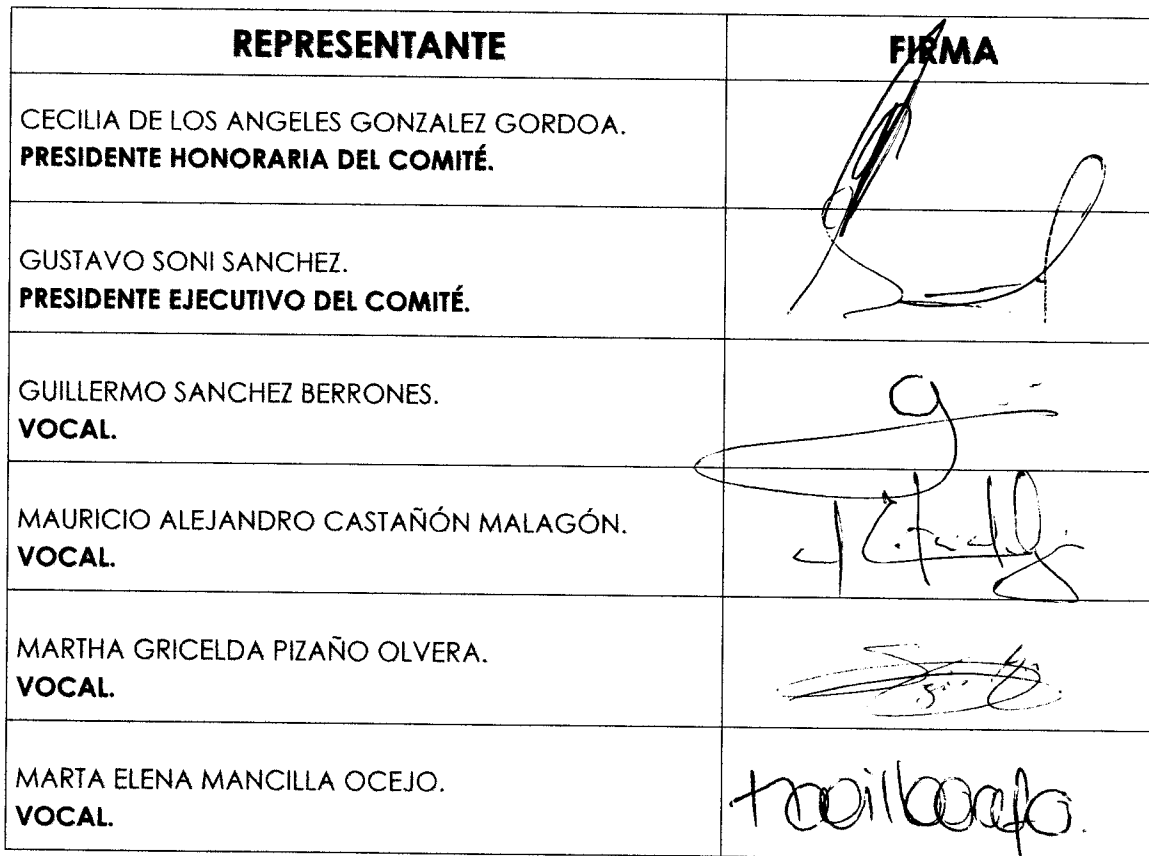 REPRESENTANTE FIRMA
CECILIA DE LOS ANGELES GONZALEZ GORDOA.
PRESIDENTE HONORARIA DEL COMITÉ.
GUSTAVO SONI SANCHEZ.
PRESIDENTE EJECUTIVO DEL COMITÉ.
GUILLERMO SANCHEZ BERRONES.
VOCAL.
MAURICIO ALEJANDRO CASTAÑÓN MALAGÓN.
VOCAL.
MARTHA GRICELDA PIZAÑO OLVERA.
VOCAL.
MARTA ELENA MANCILLA OCEJO.
VOCAL.